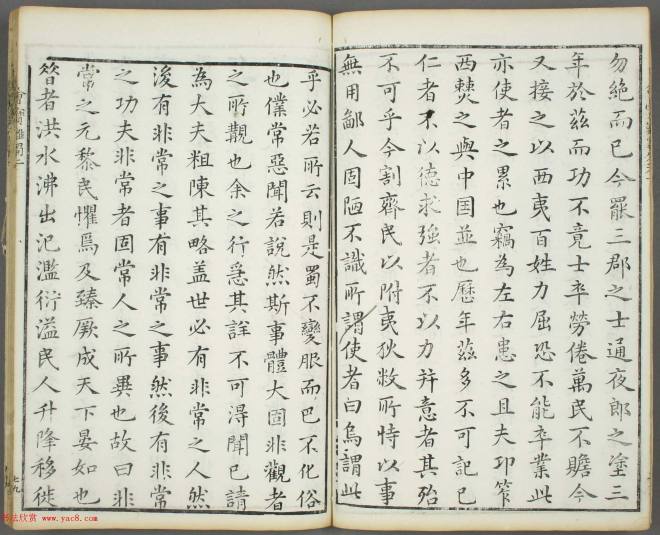 勿絶而已今罷三郡之士通夜郎之塗三
年於茲而功不竟士卒勞倦萬民不贍今
又接之以西夷百姓力屈恐不能卒業此
亦使者之累也竊為左右患之且夫邛笮
西僰之與中国並也歷年茲多不可記已
仁者不以德來強者不以力并意者其殆
不可乎今割齊民以附夷狄敝所恃以事
無用鄙人固陋不識所謂使者曰烏謂此
乎必若所云則是蜀不變服而巴不化俗
也僕常惡聞若說然斯事體大固非觀者
之所覯也余之行急其詳不可得聞已請
為大夫粗陳其略蓋世必有非常之人然
後有非常之事有非常之事然後有非常
之功夫非常者固常人之所異也故曰非
常之元黎民懼焉及臻厥成天下晏如也
昔者洪水沸出氾濫衍溢民人升降移徙
书法欣赏 www.yac8.com